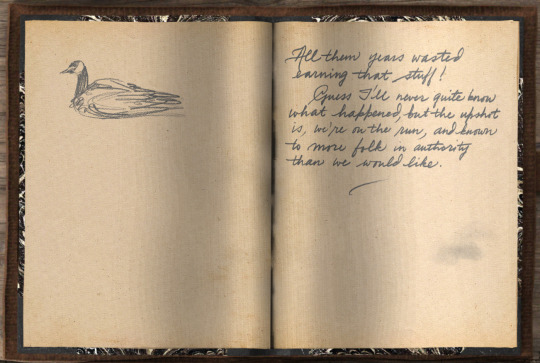 All them years wasted
earning that stuff!
Guess I'll never quite know
what happened, but the upshot
is, we're on the run, and known
to more folk in authority
than we would like.